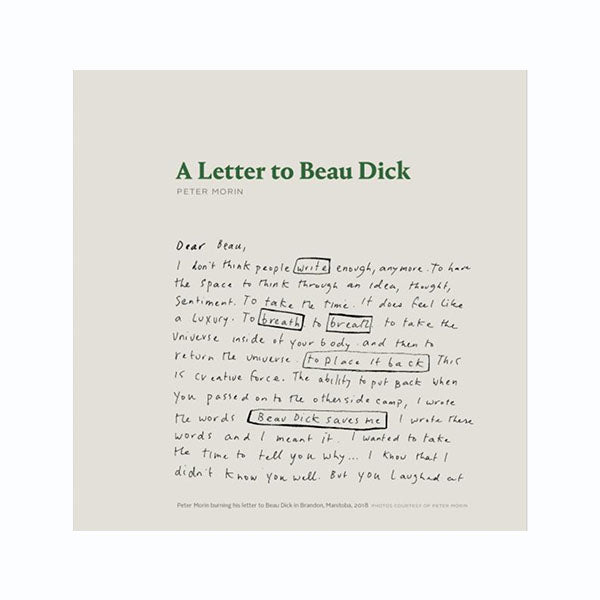 A Letter to Beau Dick
PETER MORIN
Dear Beau,
I don't think people write enough, anymore. To have
the space to think through an idea, thought,
sentiment. To take the time. It does feel like
a luxury. To breath. to breath. to take the
universe inside of your body. and then to
return the universe. to place it back This
is creative force. The ability to put back when
you passed on to the otherside camp, I wrote
the words Beau Dick saves me I wrote these
words and I meant it. I wanted to take
the time to tell you why... I know that I
didn't know you well. But you laughed at
Peter Morin burning his letter to Beau Dick in Brandon, Manitoba, 2018 PHOTOS COURTESY OF PETER MORIN